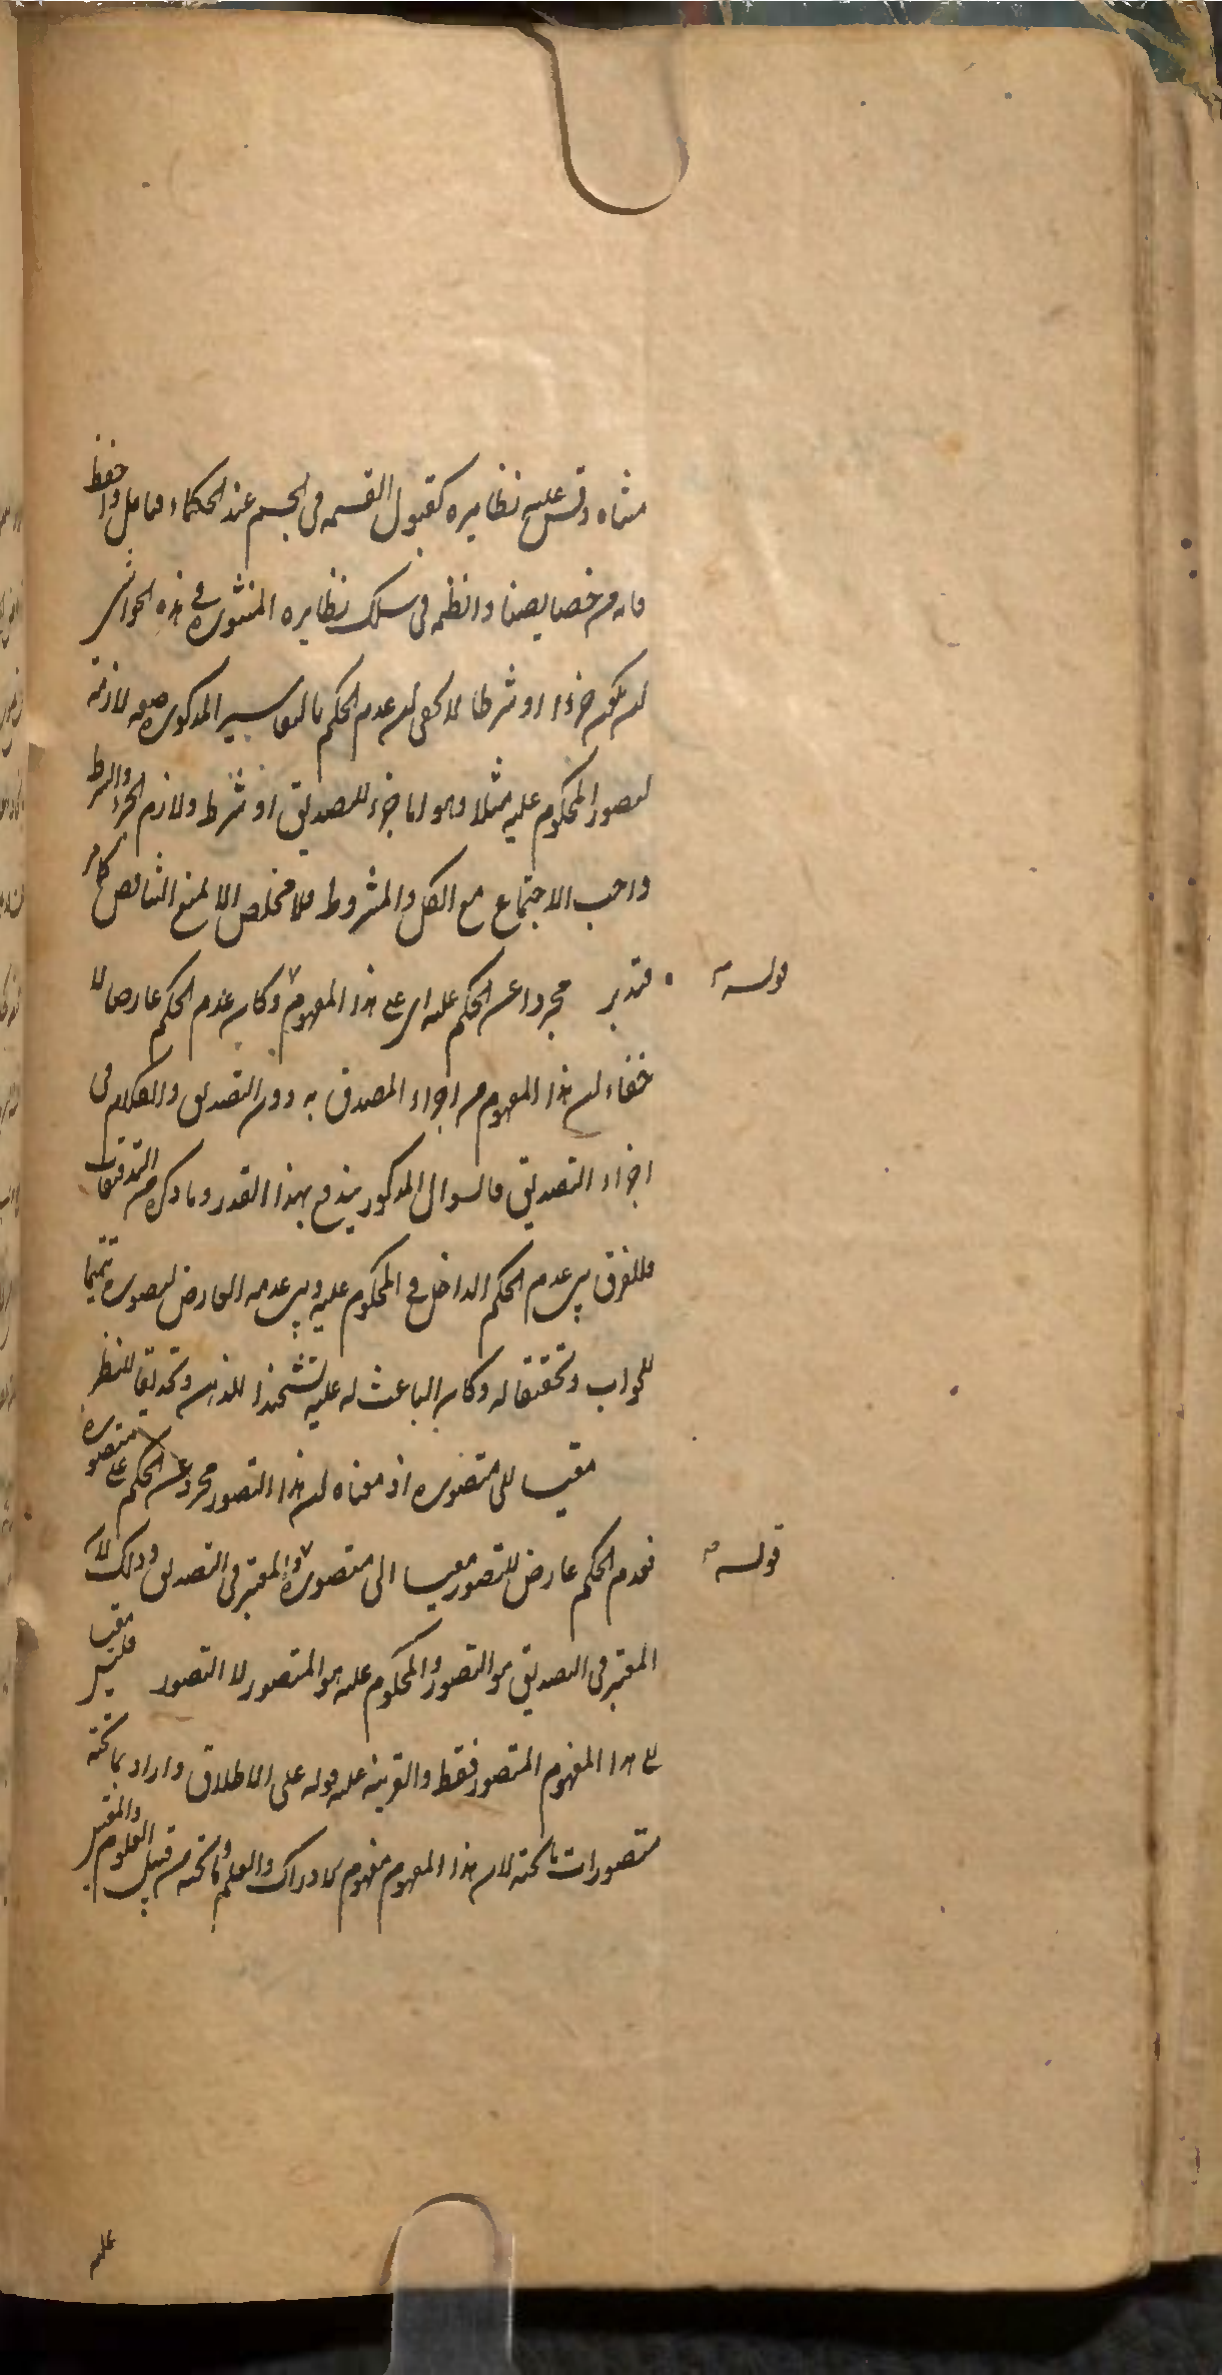 مثاه وقس عليه نظايره كقبول القسمة فى الجسم عند الحكماء فتامل واحفظ
فانه من خصايصنا وانظمه فى سلك نظايره المنثورة فى هذه الحواشى
لن يكون جزءا او شرطا لا يخفى لن عدم الحكم بالتفاسير المذكورة صفة لازمة
لتصور المحكوم عليه مثلا وهو اما جزء للتصديق او شرط ولازم الجزء والشرط
واجب الاجتماع مع الكل والمشروط فلا مخلص الا لمنع التناقض كما مر
قوله فتدبر مجردا عن الحكم عليه اى على هذا المفهوم وكان عدم الحكم عارضا لا
خفاء لن هذا المفهوم من اجزاء المصدق به دون التصديق والكلام فى
اجزاء التصديق فالسوال المذكور يندفع بهذا القدر وما ذكره من التدقيقات
فللفرق بين عدم الحكم الداخل فى المحكوم عليه وبين عدمه العارض لتصوره تتميما
للجواب وتحقيقا له وكان الباعث له عليه تشحيذا للذهن وتحديقا للنظر
مقيسا الى متصوره اذ معناه لن هذا التصور مجرد عن الحكم على متصوره
قوله فعدم الحكم عارض للتصور مقيسا الى متصوره والمعتبر فى التصديق وذلك لان
المعتبر فى التصديق هو التصور والمحكوم عليه هو المتصور لا التصور فليس مقيسا
على هذا المفهوم المتصور فقط والقرينة عليه قوله على الاطلاق واراد بما تحته
متصورات ما تحته لان هذا المفهوم مفهوم الادراك والعلم وما تحته من قبيل العلوم والمعتبر
عليه